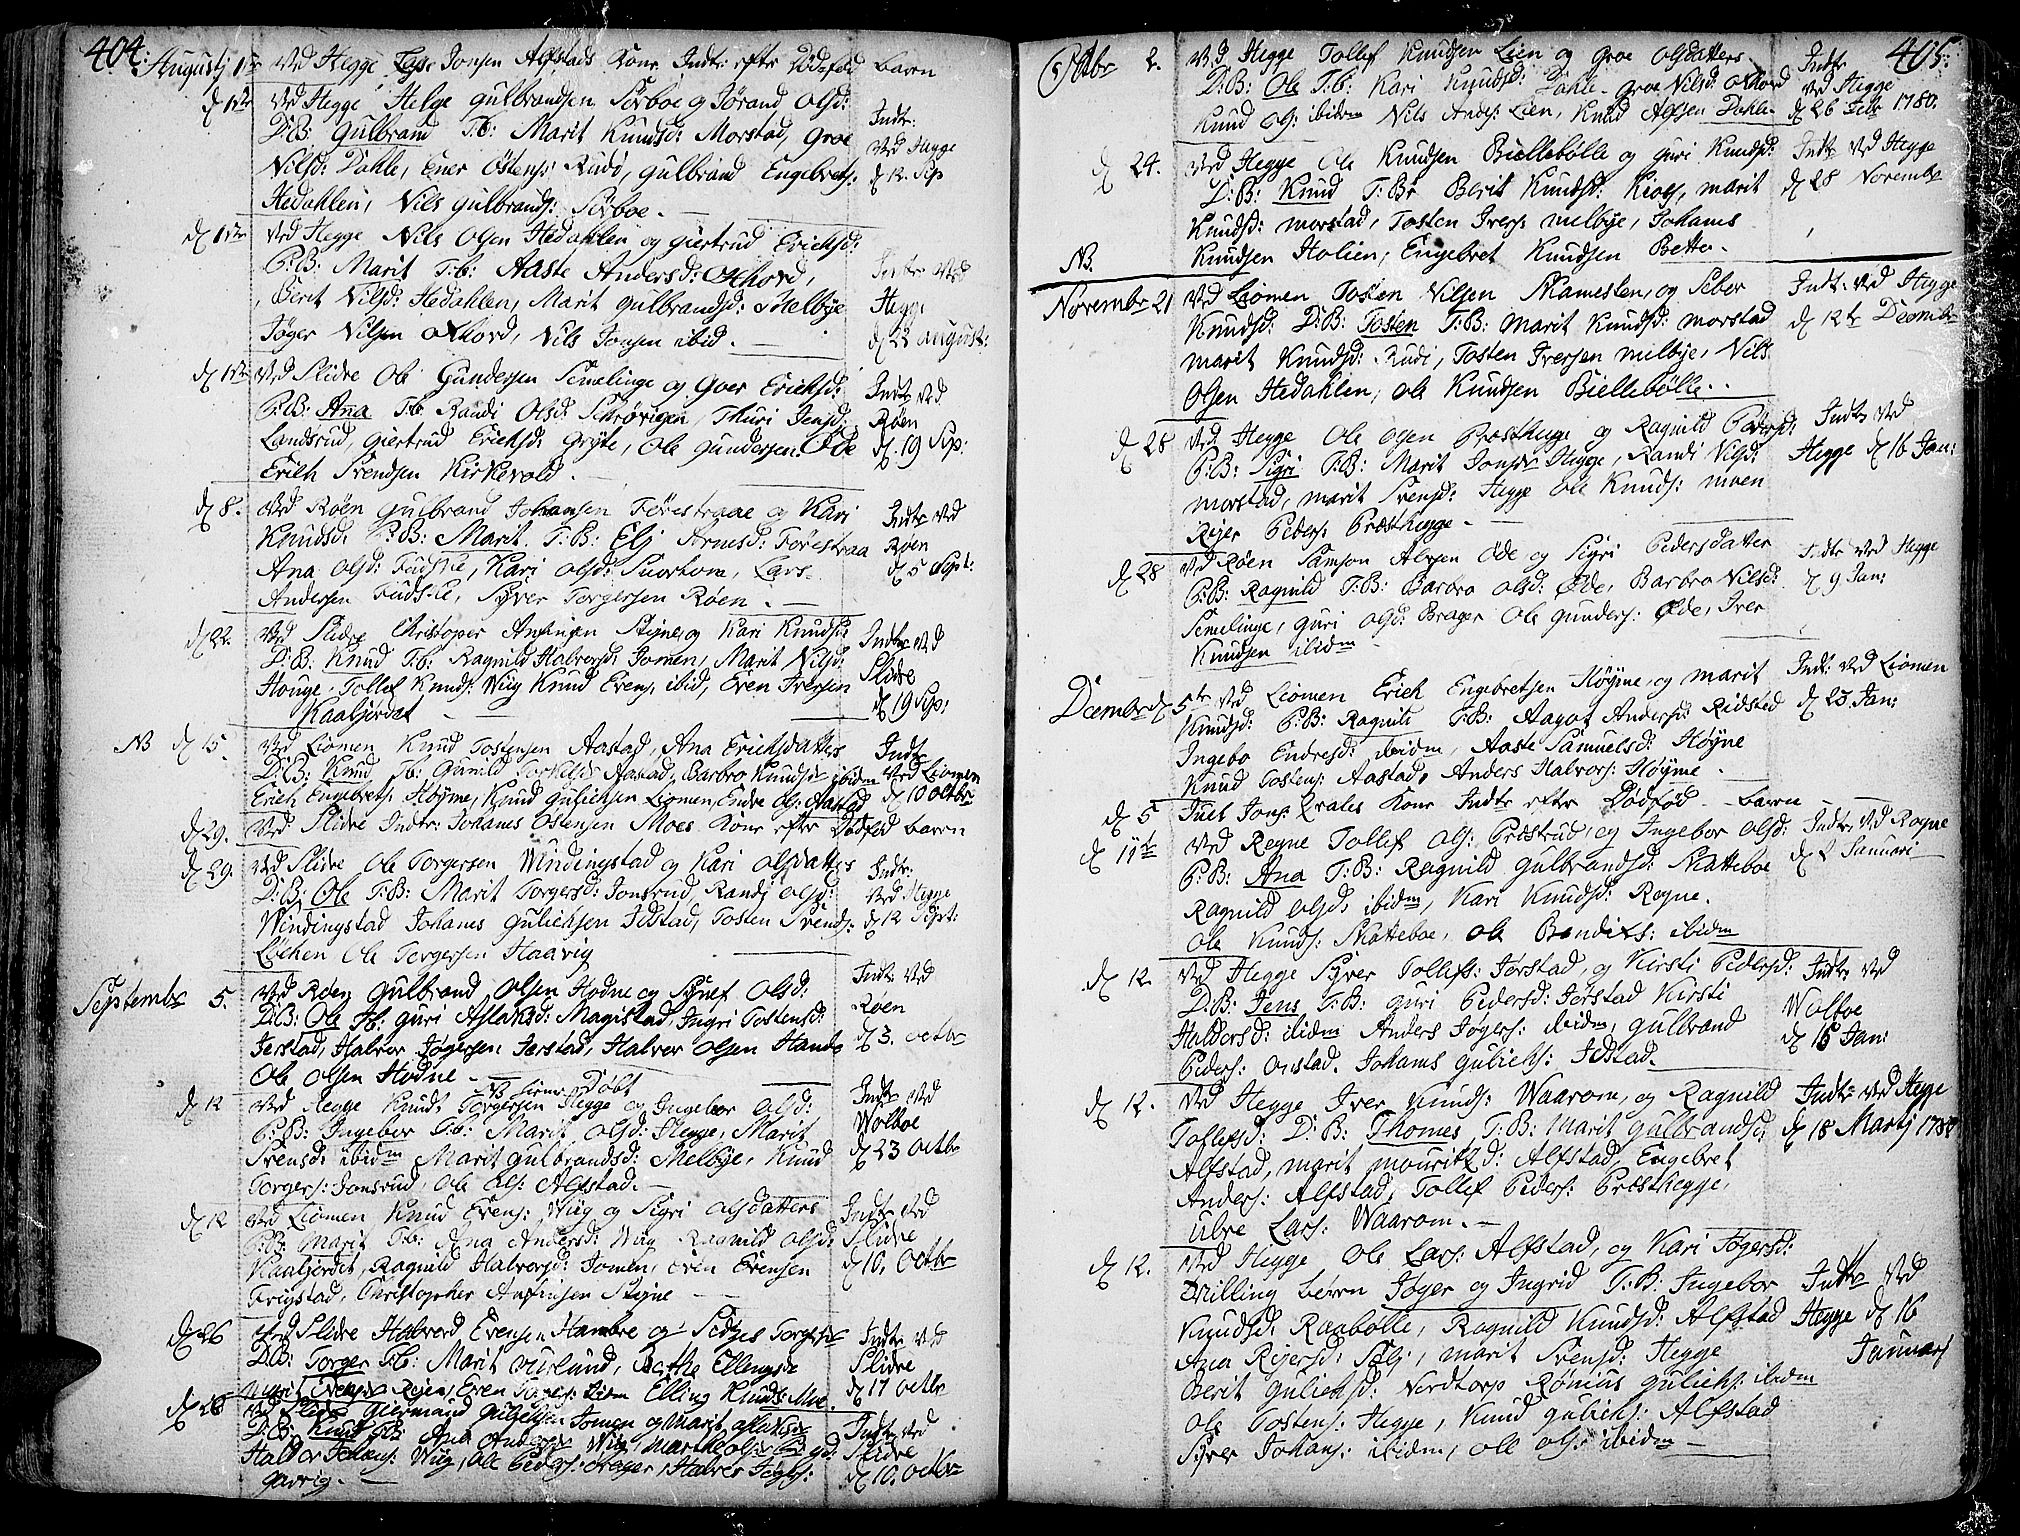 404.
Augustj 1ste Ved Hegge Lars Jonsen Alfstads Kone Indtr: efter Dødfød barn
d 1ste Ved Hegge, Helge Gulbrandsen Sørboe og Jørand Olsd:
D:B: Gulbrand T:b: Marit Knudsd: Morstad, Groe
Nilsd: Dahle, Ener Østens: Rudi, Gulbrand Engebrets:
Hedahlen, Nils Gulbrands: Sørboe.
Indtr: Ved Hegge d 12. Sep
d 1ste Ved Hegge Nils Olsen Hedahlen og Giertrud Erichsd:
P:B: Marit T:b: Aaste Andersd: Okhord,
Berit Nilsd: Hedahlen, Marit Gulbrandsd: Melbÿe
Jøger Nilsen Okhord, Nils Jonsen ibid.
Indtr Ved Hegge d 22 August:
d 1ste Ved Slidre Ole Gundersen Semelinge og Goer Erichsd:
P:B: Ana T:b Randi Olsd: Schrøvigen, Thuri Jensd:
Landsrud, Giertrud Erichsd: Grÿte, Ole Gundersen Øde
Erich Svendsen Kirkevold.
Indtr Ved Røen d. 19 Sep:
d 8. Ved Røen Gulbrand Johansen Førestraae og Kari
Knudsd: P:B: Marit. T:B: Elj Arnesd: Førestraa
Ana Olsd: Fudsle, Kari Olsd: Snortom, Lars
Andersen Fudsle, Syver Torgersen Røen.
Indtr Ved Røen d 5 Sept:
d 22. Ved Slidre Christoper Anfinsen Steÿne og Kari Knudsd:
D:B: Knud T:b: Ragnild Halvorsd: Jomen, Marit Nilsd:
Houge, Tollef Knuds: Wiig Knud Evens: ibid, Even Iversen
Kaaljordet
Indtr Ved Slidre d 19 Sep:
NB d 15. Ved Liomen Knud Tostensen Aastad, Ana Erichsdatter
D:B: Knud T:b: Gunild Torkelsd: Aastad, Barbro Knudsd: ibidm
Erich Engebrets: Høÿme, Knud Gulichsen Liomen, Endre Ols: Aastad
Indtr Ved Liomen d 10 Octbr
d 29. Ved Slidre Indtr: Johanes Ostensen Moes Kone efter Dødfød barn
d 29. Ved Slidre Ole Torgersen Windingstad og Kari Olsdatter
D:B: Ole T:B: Marit Torgersd: Jonsrud, Randi Olsd:
Windingstad Johanes Gulichsen Ildstad, Tosten Svends:
Løchen Ole Torgersen Haavig
Indtr: Ved Hegge d 12 Sept:
Septembr 5. Ved Røen Gulbrand Olsen Hodne og Synef Olsd:
D:B: Ole T:b: Guri Aslaksd: Magistad, Ingri Tostensd:
Jerstad, Halvor Jøgersen Jerstad, Halvor Olsen Hande
Ole Olsen Hodne
Indtr: Ved Røen d 3. Octbr
NB hieme Døbt
d 12 Ved Hegge Knud Torgersen Hegge og Ingebor Olsd:
P:B: Ingebor T:b: Marit Olsd: Hegge, Marit
Svensd: ibidm Marit Gulbrandsd: Melbÿe, Knud
Torgers: Jonsrud, Ole Ols: Alfstad.
Indtr Ved Wolboe d 23 Octbr
d 12 Ved Liomen Knud Evens: Wiig og Sigri Olsdatter
P:B: Marit T:b: Ana Andersd: Wiig Ragnild Olsd:
Kaaljordet, Ragnild Halvorsd: Jomen, Even Evensen
Frigstad, Christopher Anfinsen Steÿne
Indtr Ved Slidre d 10. Octbr
d 26 Ved Slidre Halvord Evensen Hambre og Torgersd:
D:B: Torger T:b: Marit Ourland, Berthe Ellengsd:
Marit Evensd: Reien, Even Torgers: ibidm Elling Knuds: Moe
Indtr Ved Slidre d 17 Octbr
d 26 Ved Slidre Giermund Gulichsen Jomen og Marit Olsd:
D:B: Knud T:b: Ana Andersd: Wiig, Marthe Olsd:
Haldor Wiig, Ole Peders: Brager, Halvor Jøgers:
Garrig.
Indtr Ved Slidre d 10. Octbr
405.
Octbr 2. Ved Hegge Tollef Knudsen Lien og Groe Olsdatter
D:B: Ole T:b: Kari Knudsd: Dahle, Groe Nilsd: Okhord
Knud Ols: ibidm Nils Anders: Lien, Knud Alfsen Dahle
Indtr Ved Hegge d 26 Febr 1780.
d 24. Ved Hegge Ole Knudsen Biellebølle og Guri Knudsd:
D:B: Knud T:Br Berit Knudsd: Kroes, Marit
Knudsd: Morstad, Tosten Ivers: Melbÿe, Johanes
Knudsen Holien, Engebret Knudsen Bette.
Indtr Ved Hegge d 28 Novembr
NB.
Novembr 21 Ved Liomen Tosten Nilsen Skamesten, og Seber
Knudsd: D:B: Tosten T:B: Marit Knudsd: Morstad
Marit Knudsd: Rudi, Tosten Iversen Melbÿe, Nils
Olsen Hedahlen, Ole Knudsen Biellebølle.
Indtr: Ved Hegge d 12te Decmbr
d 28 Ved Hegge Ole Olsen Præsthegge og Ragnild Pedersd:
P:B: Sigri T:B: Marit Jonsd: Hegge, Randi Nilsd:
Morstad, Marit Svensd: Hegge Ole Knuds: Moen
Reier Peders: Præsthegge.
Indtr Ved Hegge d 16 Jan:
d 28 Ved Røen Samson Alvsen Øde og Sigri Pedersdatter
P:B: Ragnild T:B: Barbro Olsd: Øde, Barbro Nilsd:
Semelinge, Guri Olsd: Brager Ole Gunders: Øde, Iver
Knudsen ibidm
Indtr Ved Hegge d 9 Jan:
Decembr d 5te Ved Liomen Erich Engebretsen Høÿme og Marit
Knudsd: P:B: Ragnild T:B: Aagot Andersd: Ridstad
Ingebo Endresd: ibidm, Aaste Samuelsd: Høÿne
Knud Tostens: Aastad, Anders Halvors: Høÿme.
Indtr: Ved Liomen d 23 Jan:
d 5 Juel Jons: Qvales Kone Indtr efter Dødfød barn
d 11te Ved Rogne Tollef Ols: Præstrud, og Ingebor Olsd:
P:B: Ana T:B: Ragnild Gulbrandsd: Skatteboe
Ragnild Olsd: ibidm, Kari Knudsd: Rogne.
Ole Knuds: Skatteboe, Ole Bendixs: ibidm
Indtr: Ved Rogne d 2 Januari
d 12. Ved Hegge Syver Tollefs: Jørstad, og Kirsti Pedersd:
D:B: Jens T:B: Guri Pedersd: Jørstad Kirsti
Haldorsd: ibidm Anders Jøgers: ibidm, Gulbrand
Peders: Onstad. Johanes Gulichs: Ildstad.
Indtr Ved Wolboe d 15 Jan:
d 12. Ved Hegge Iver Knuds: Waarom, og Ragnild
Tollefsd: D:B: Thomes T:B: Marit Gulbrandsd:
Alfstad, Marit Mouritzd: Alfstad, Engebret
Anders: Alfstad, Tollef Peders: Præsthegge,
Ulve Lars: Waarom.
Indtr Ved Hegge d 18 Martj 1780
d 12. Ved Hegge Ole Lars: Alfstad, og Kari Jøgersd:
Tvilling børn Jøger og Ingrid T:B: Ingebor
Knudsd: Raabølle, Ragnild Knudsd: Alfstad
Ana Reiersd: Sælj, Marit Svensd: Hegge
Berit Gulichsd: Nordtorp Rønius Gulichs: ibidm
Ole Tostens: Hegge, Knud Gulichs: Alfstad
Syver Johans: ibidm, Ole Ols: ibidm
Indtr Ved Hegge d 16 Januarj